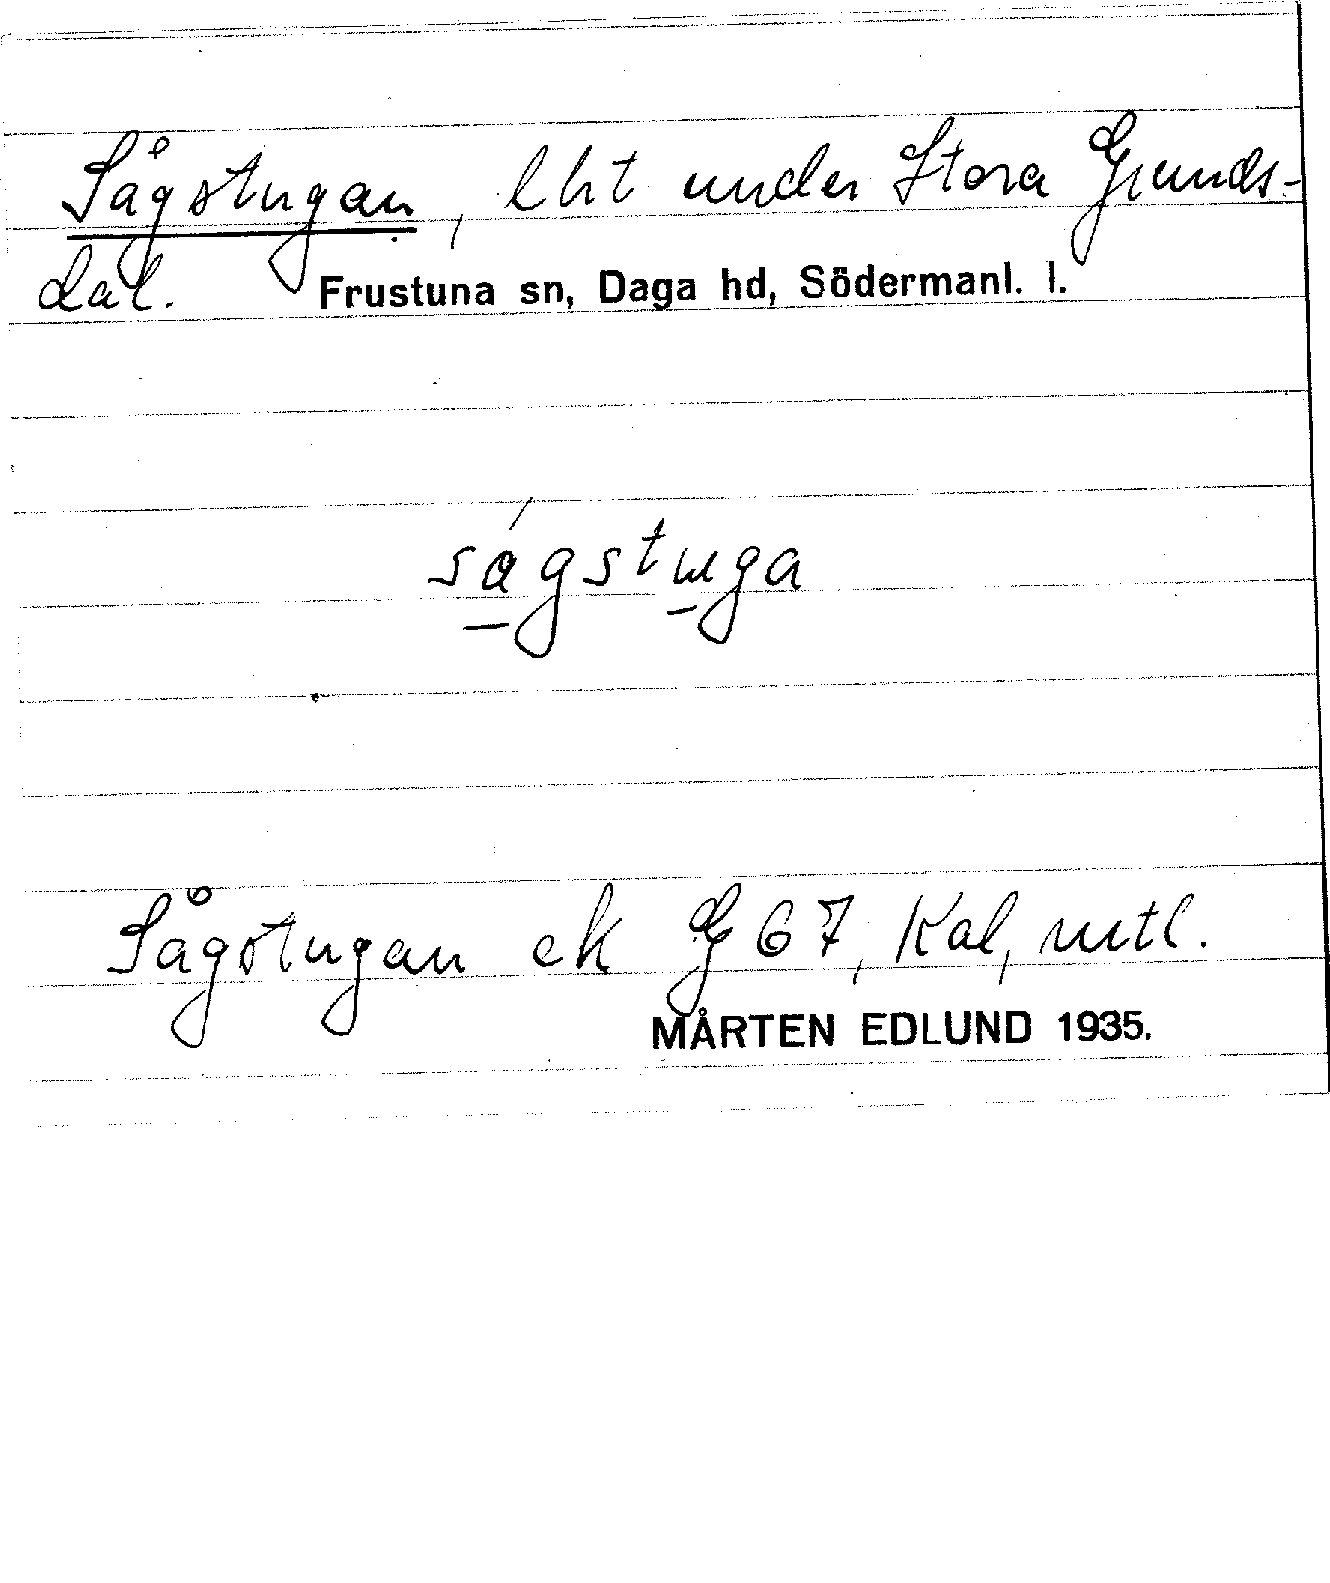 Sågstugan, lht under Stora Grunds-
dal. Frustuna sn, Daga hd, Södermanl. l.
ságstuga
Sågstugan ek G 67, Kal, mtl.
MÅRTEN EDLUND 1935.